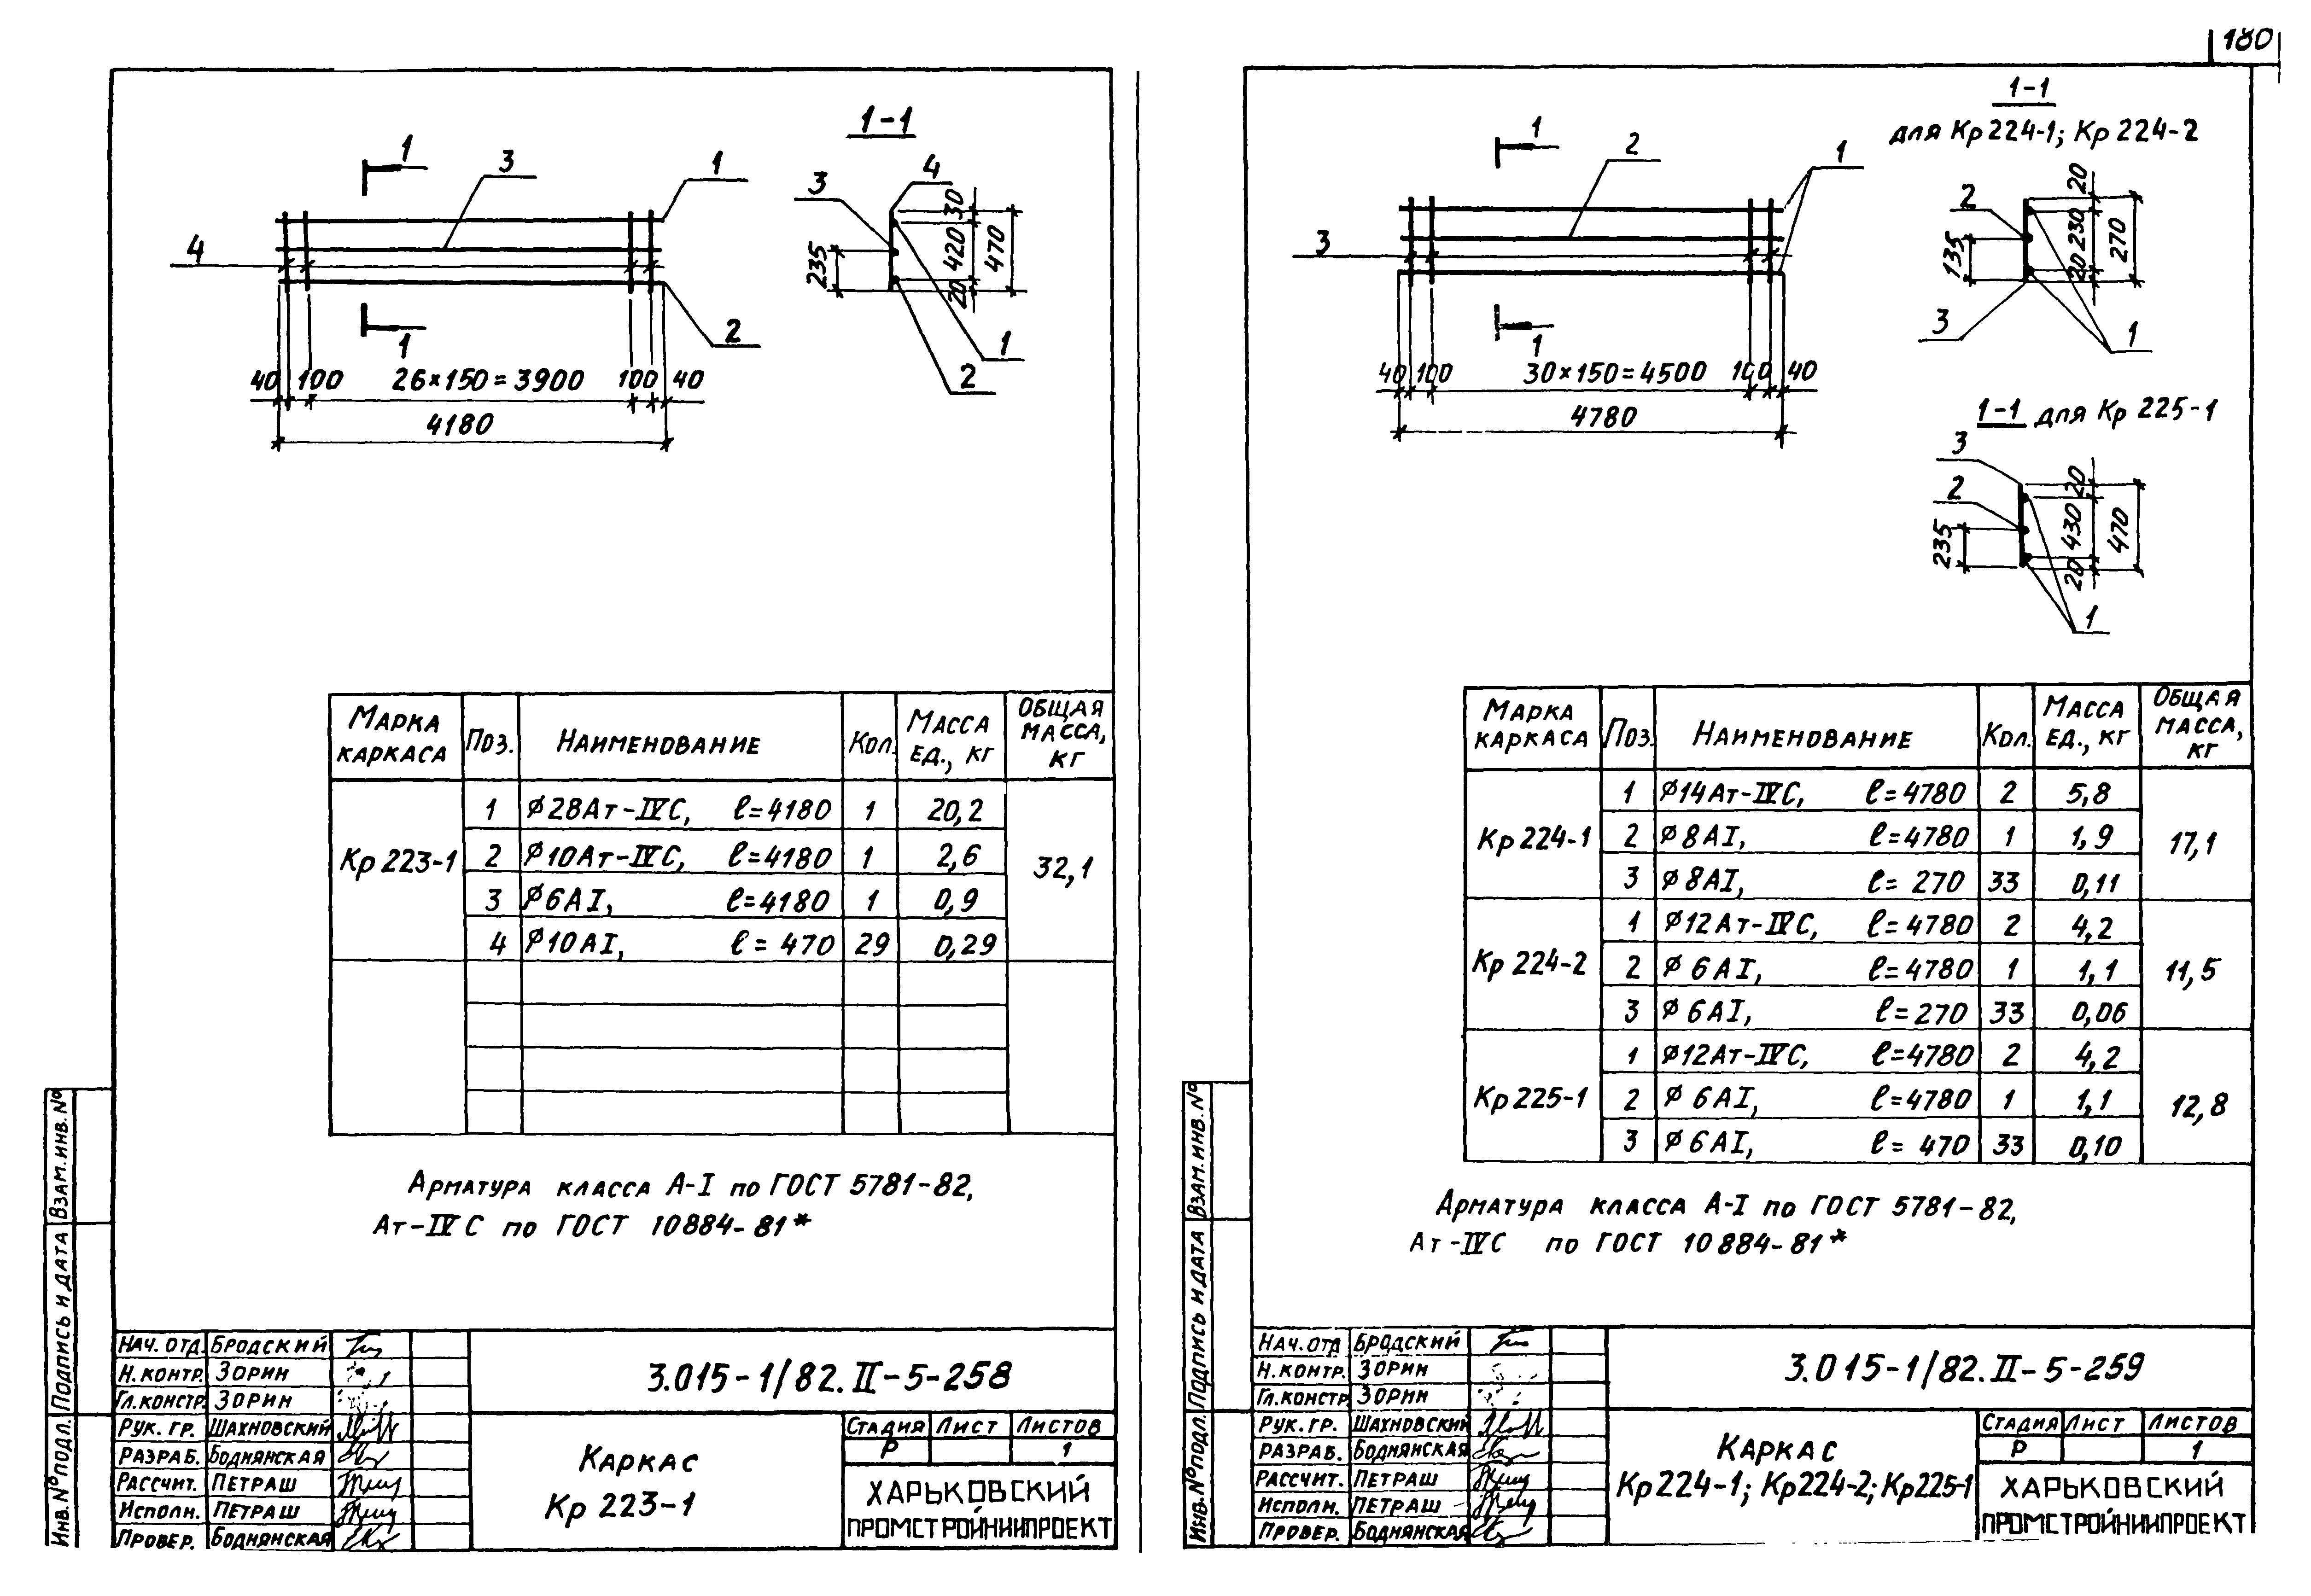 180
1-1
1
3
1
4
2
1
40 100 26×150=3900 100 40
4180
3
4
235
30
420
20
470
1
2
Марка каркаса Поз. Наименование Кол. Масса ед., кг Общая масса, кг
Кр 223-1 1 ϕ28Ат-IVС, ℓ=4180 1 20,2 32,1
2 ϕ10Ат-IVС, ℓ=4180 1 2,6
3 ϕ6АI, ℓ=4180 1 0,9
4 ϕ10АI, ℓ= 470 29 0,29
Арматура класса А-I по ГОСТ 5781-82,
Ат-IVС по ГОСТ 10884-81*
Инв. № подл. Подпись и дата Взам. инв. №
Нач. отд. Бродский
Н. контр. Зорин
Гл. констр. Зорин
Рук. гр. Шахновский
Разраб. Боднянская
Рассчит. Петраш
Исполн. Петраш
Провер. Боднянская
3.015-1/82.II-5-258
Каркас
Кр 223-1
Стадия Лист Листов
Р 1
ХАРЬКОВСКИЙ
ПРОМСТРОЙНИИПРОЕКТ
1-1
для Кр 224-1; Кр 224-2
1
2
1
3
1
40 100 30×150=4500 100 40
4780
2
135
20
230
20
270
3
1
1-1 для Кр 225-1
3
2
235
20
430
20
470
1
Марка каркаса Поз. Наименование Кол. Масса ед., кг Общая масса, кг
Кр 224-1 1 ϕ14Ат-IVС, ℓ=4780 2 5,8 17,1
2 ϕ8АI, ℓ=4780 1 1,9
3 ϕ8АI, ℓ= 270 33 0,11
Кр 224-2 1 ϕ12Ат-IVС, ℓ=4780 2 4,2 11,5
2 ϕ6АI, ℓ=4780 1 1,1
3 ϕ6АI, ℓ=270 33 0,06
Кр 225-1 1 ϕ12Ат-IVС, ℓ=4780 2 4,2 12,8
2 ϕ6АI, ℓ=4780 1 1,1
3 ϕ6АI, ℓ= 470 33 0,10
Арматура класса А-I по ГОСТ 5781-82,
Ат-IVС по ГОСТ 10884-81*
Инв. № подл. Подпись и дата Взам. инв. №
Нач. отд Бродский
Н. контр. Зорин
Гл. констр. Зорин
Рук. гр. Шахновский
Разраб. Боднянская
Рассчит. Петраш
Исполн. Петраш
Провер. Боднянская
3.015-1/82.II-5-259
Каркас
Кр224-1; Кр224-2; Кр225-1
Стадия Лист Листов
Р 1
ХАРЬКОВСКИЙ
ПРОМСТРОЙНИИПРОЕКТ